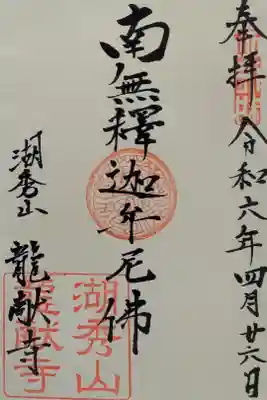 奉拝 令和六年四月廿六日
南無釋迦牟尼佛
湖秀山 龍献寺
湖秀山
龍献寺